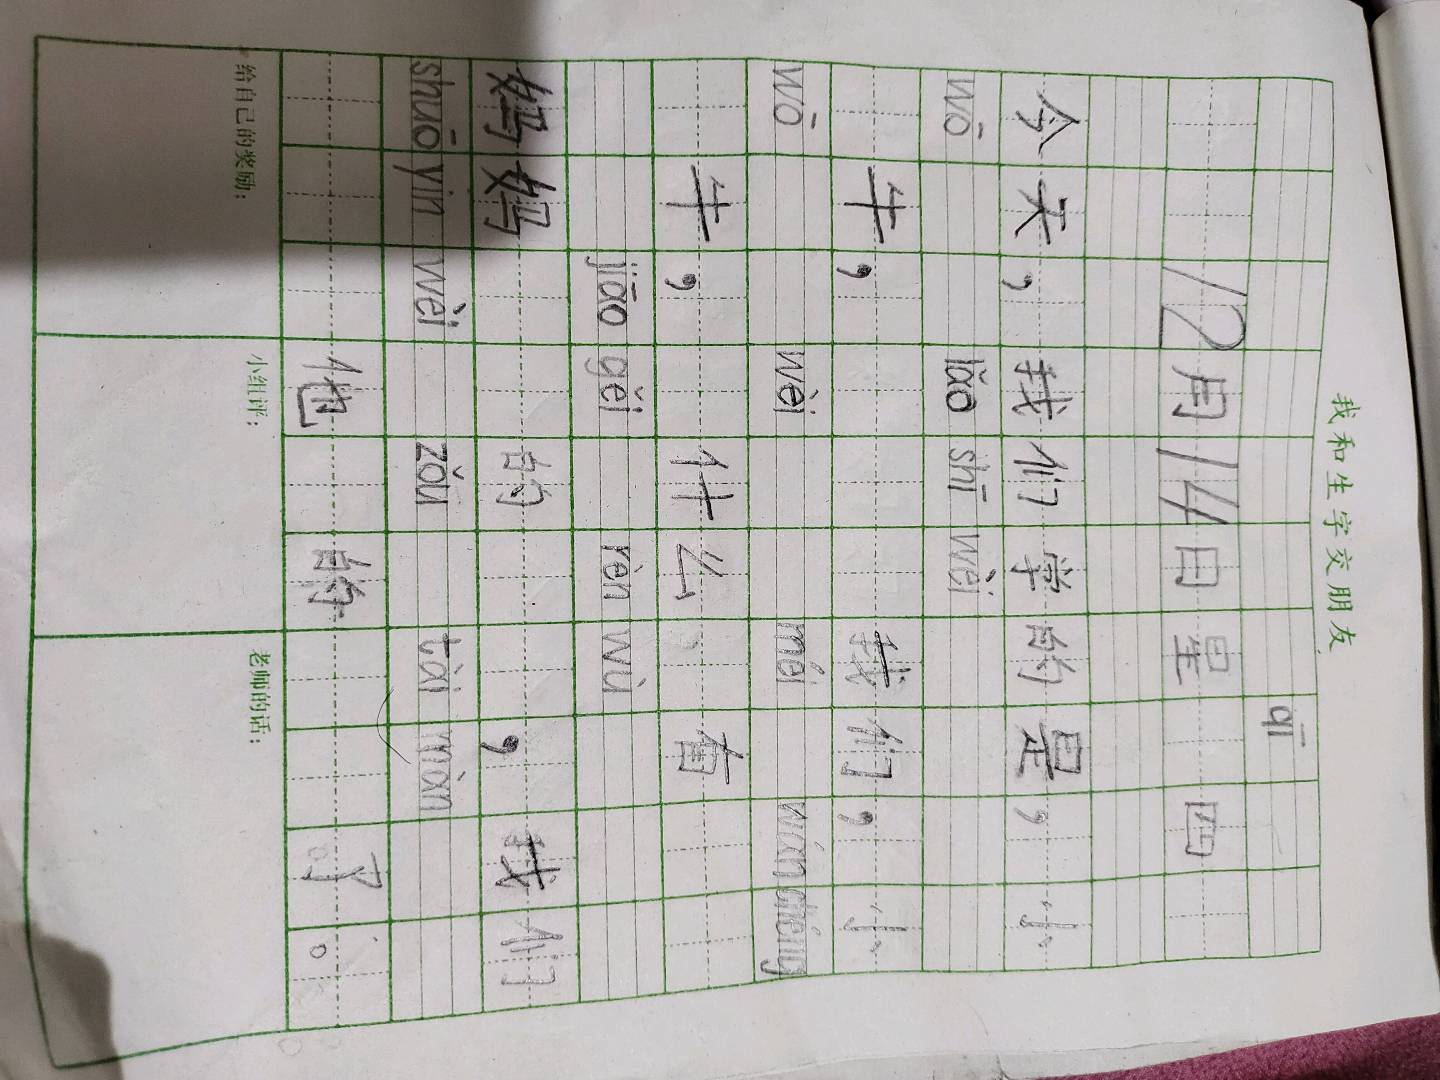 我和生字交朋友
qī
12月14日星 四
今天，我们学的是，小
wō lǎo shī wèi
牛， 我们，小
wō wèi méi wán chéng
牛， 什么 有
jiāo gěi rèn wù
妈妈 的 ，我们
shuō yīn wèi zǒu tài màn
他 的 了。
给自己的奖励： 小组评： 老师的话：